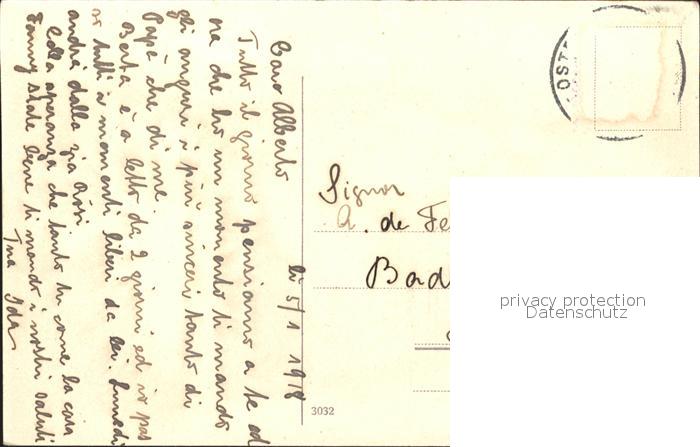 li 5/1 1918
Caro Alberto
Tutto il giorno pensiamo a te ed
ora che ho un momento ti mando
gli auguri i più sinceri tanto di
Papà che di me.
Berta è a letto da 2 giorni ed io passo
tutti i momenti liberi da lei. Lunedì
andrà dalla zia Rosi.
Colla speranza che tanto tu come la cara
Fanny stiate bene ti mando i nostri saluti
Tua Ida
Signor
A. de Fe
Bad
3032
OST
privacy protection
Datenschutz